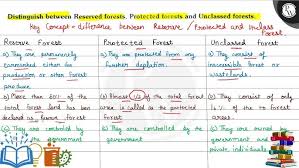 Distinguish between Reserved forests, Protected forests and Unclassed forests.
Key Concept - difference between Reserve / Protected and Unclass Forest.
Reserve Forest
a) They are permanently earmarked either to production or other forest produce.
b) More than 50% of the total forest land has been declared as reserve forest
c) They are controlled by government
Protected Forest
a) They are protected from any further depletion.
b) Almost 1/3 of the total forest area is called as the protected forest
c) They are controlled by the government
Unclassed forest
a) They consist of inaccessible forest or wastelands.
b) They consist of only % of the forest areas.
c) They are owned by government and private individuals